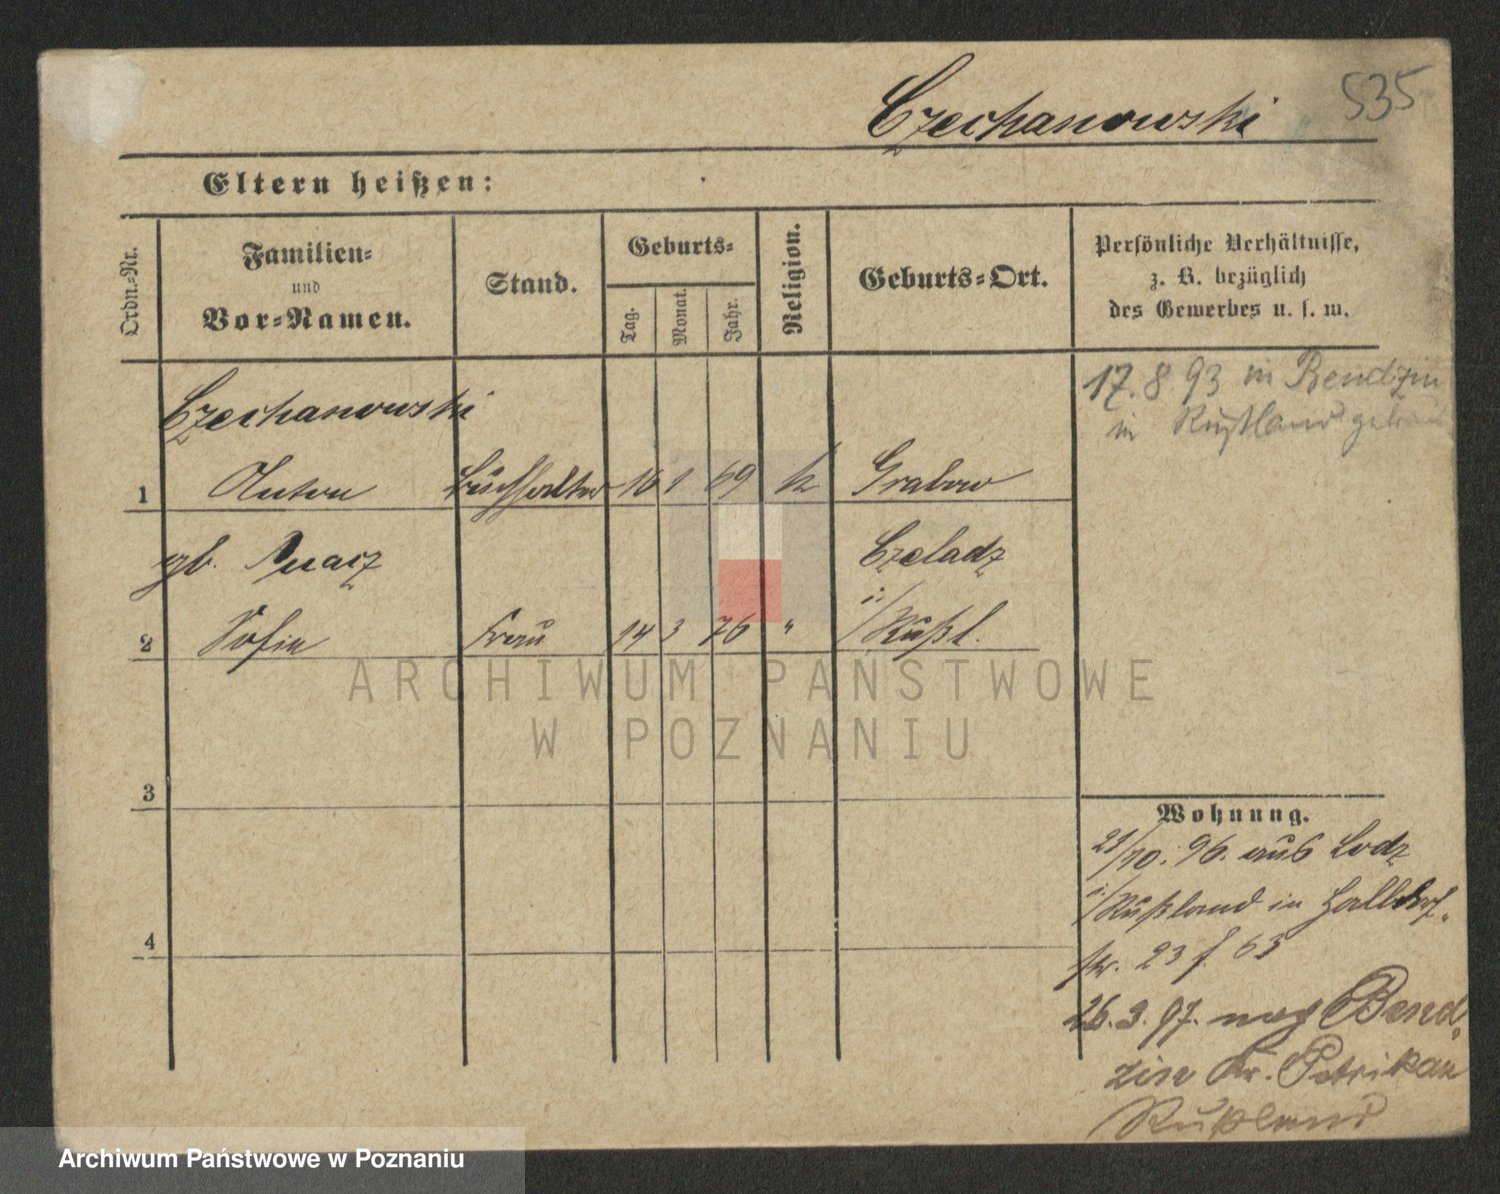 535
Czechanowski
Eltern heißen:
Ordn.-Nr.
Familien-
und
Vor-Namen.
Stand.
Geburts-
Tag.
Monat.
Jahr.
Religion.
Geburts-Ort.
Persönliche Verhältnisse,
z. B. bezüglich
des Gewerbes u. s. w.
17. 8 93 in Bendzin
in Rußland getraut
Czechanowski
1 Anton Buchhalter 16 1 69 k Grabow
gb.
Czeladz
2 Sofie Frau 14 3 76 " i/Rußl.
3
4
Wohnung.
21/10. 96. aus Lodz
i/Rußland in Halldorf-
str. 23 b 63
26. 3. 97. nach Bend-
zin Kr. Petrikau
Rußland
ARCHIWUM PAŃSTWOWE
W POZNANIU
Archiwum Państwowe w Poznaniu